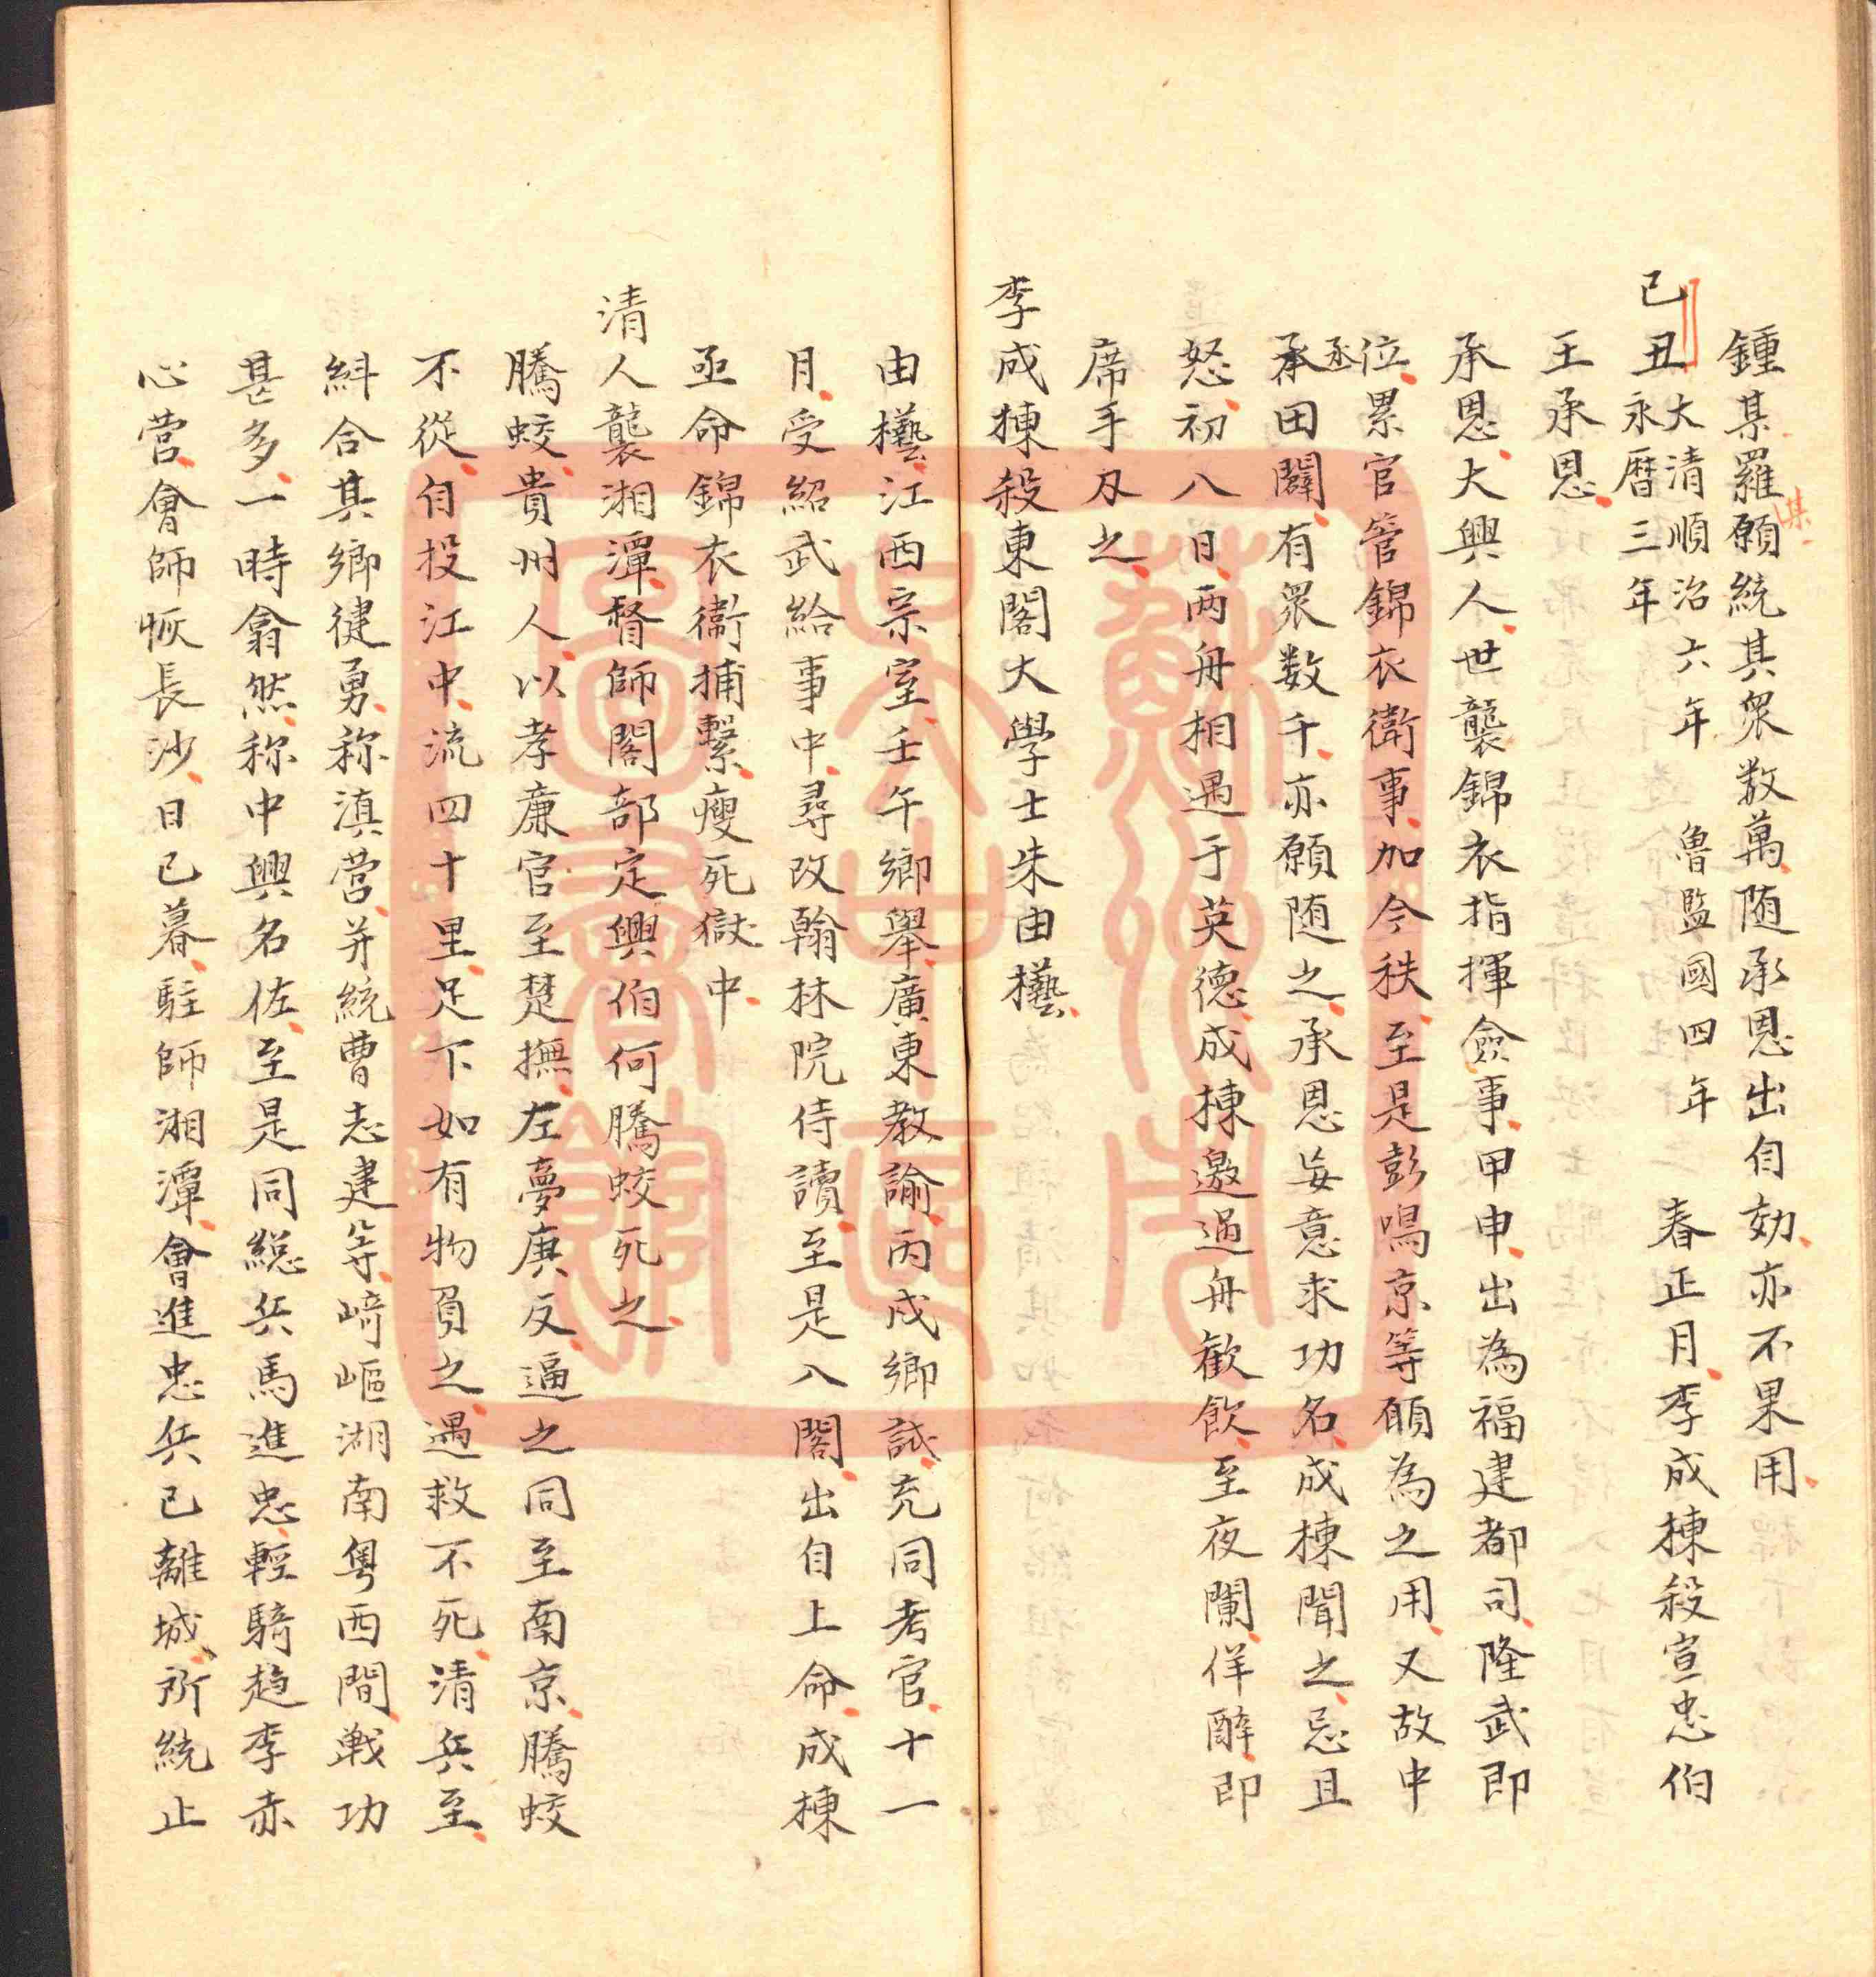 鍾某羅願統其眾数萬随承恩出自効亦不果用
其
己丑大清順治六年 魯監國四年 春正月李成棟殺宣忠伯
永曆三年
王承恩
承恩大興人世襲錦衣指揮僉事甲申出為福建都司隆武即
位累官管錦衣衛事加今秩至是彭鳴京等願為之用又故中
丞
承田闢有眾数千亦願随之承恩妄意求功名成棟聞之忌且
怒初八日两舟相遇于英德成棟邀過舟歡飲至夜闌佯醉即
席手刃之
李成棟殺東閣大學士朱由㰙
由㰙江西宗室壬午鄉舉廣東教諭丙戌鄉試充同考官十一
月受紹武給事中尋改翰林院侍讀至是入閣出自上命成棟
亟命錦衣衛捕繫瘦死獄中
清人襲湘潭督師閣部定興伯何騰蛟死之
騰蛟貴州人以孝廉官至楚撫左夢庚反逼之同至南京騰蛟
不從自投江中流四十里足下如有物負之遇救不死清兵至
糾合其鄉徤勇称滇營并統曹志建等﨑嶇湖南粤西間戦功
甚多一時翕然称中興名佐至是同総兵馬進忠輕騎趋李赤
心營會師恢長沙日已暮駐師湘潭會進忠兵已離城所統止
蘇州市
文史专
圖書館